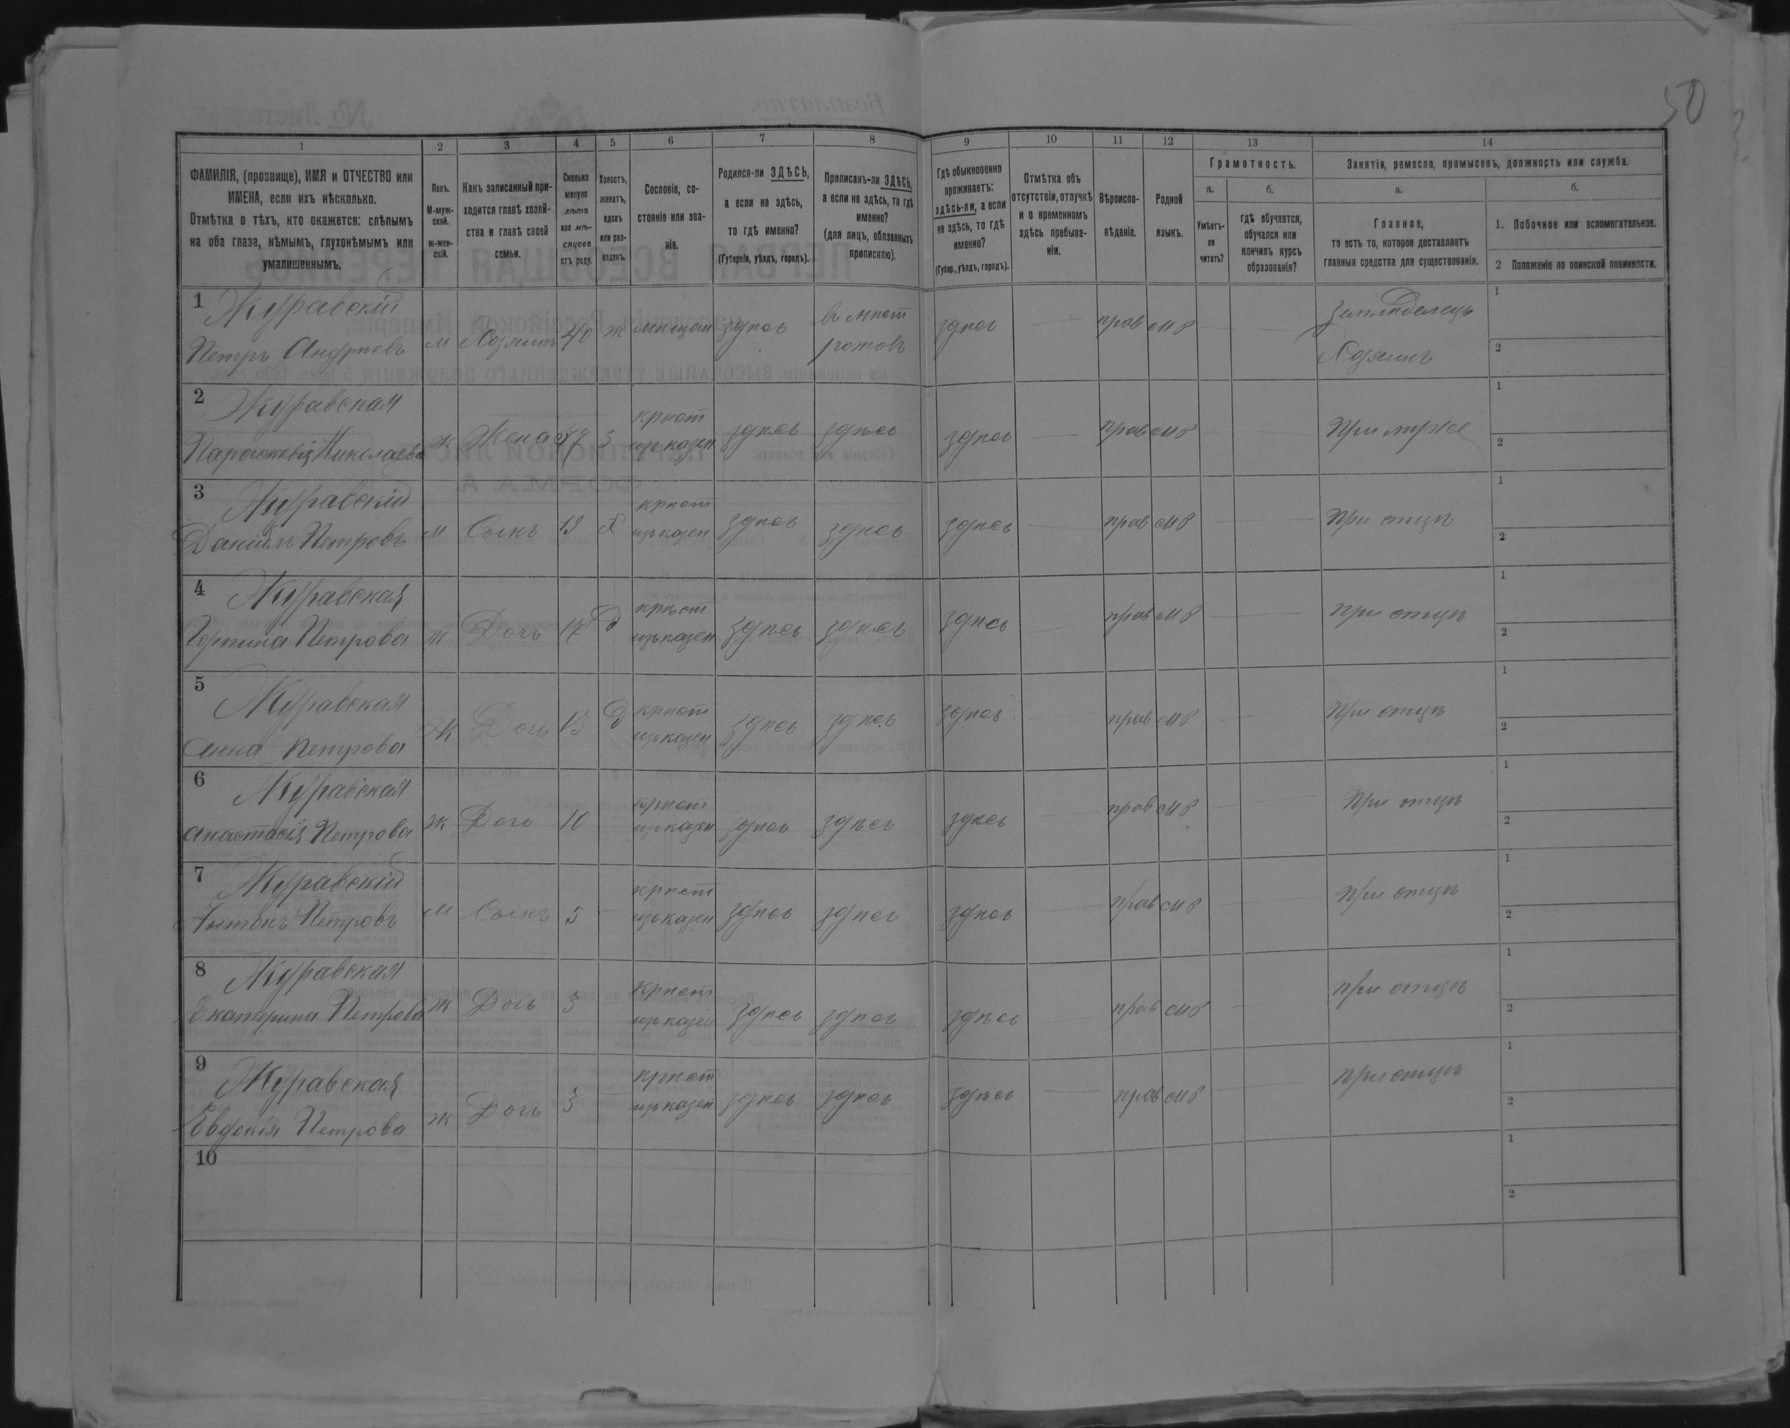 50
1
2
3
4
5
6
7
8
9
10
11
12
13
14
ФАМИЛІЯ, (прозвище), ИМЯ и ОТЧЕСТВО или
ИМЕНА, если ихъ нѣсколько.
Отмѣтка о тѣхъ, кто окажется: слѣпымъ
на оба глаза, нѣмымъ, глухонѣмымъ или
умалишеннымъ.
Полъ.
М-муж-
ской.
ж-жен-
скій.
Какъ записанный при-
ходится главѣ хозяй-
ства и главѣ своей
семьи.
Сколько
минуло
лѣтъ
или мѣ-
сяцевъ
отъ роду.
Холостъ,
женатъ,
вдовъ
или раз-
веденъ.
Сословіе, со-
стояніе или зва-
ніе.
Родился-ли ЗДѢСЬ,
а если не здѣсь,
то гдѣ именно?
(Губернія, уѣздъ, городъ).
Приписанъ-ли ЗДѢСЬ,
а если не здѣсь, то гдѣ
именно?
(для лицъ, обязанныхъ
припискою).
Гдѣ обыкновенно
проживаетъ:
здѣсь-ли, а если
не здѣсь, то гдѣ
именно?
(Губерн., уѣздъ, городъ).
Отмѣтка объ
отсутствіи, отлучкѣ
и о временномъ
здѣсь пребыва-
ніи.
Вѣроиспо-
вѣданіе.
Родной
языкъ.
Грамотность.
а.
Умѣетъ-
ли
читать?
б.
гдѣ обучается,
обучался или
кончилъ курсъ
образованія?
Занятія, ремесло, промыселъ, должность или служба.
а.
Главное,
то есть то, которое доставляетъ
главныя средства для существованія.
б.
1. Побочное или вспомогательное.
2 Положеніе по воинской повинности.
1 Журавскій
Петръ Андреевъ
м Хозяинъ 40 ж мѣщан здѣсь
в мѣст
здѣсь прав мв
Земледѣлецъ
Хозяинъ
1
2
2 Журавская
Параскевія Николаева
ж Жена з
крѣст
изъ казен
здѣсь здѣсь здѣсь прав мв При мужѣ
1
2
3 Журавскій
Даніилъ Петровъ
м Сынъ х
крѣст
изъ казен
здѣсь здѣсь здѣсь прав мв При отцѣ
1
2
4 Журавская
Горпина Петрова
ж Дочь 17 д
крѣст
изъ казен
здѣсь здѣсь здѣсь прав мв При отцѣ
1
2
5 Журавская
Анна Петрова
ж Дочь д
крѣст
изъ казен
здѣсь здѣсь здѣсь прав мв При отцѣ
1
2
6 Журавская
Анастасія Петрова
ж Дочь 10
крѣст
изъ казен
здѣсь здѣсь здѣсь прав мв При отцѣ
1
2
7 Журавскій
Антонъ Петровъ
м Сынъ 5
крѣст
изъ казен
здѣсь здѣсь здѣсь прав мв При отцѣ
1
2
8 Журавская
Екатерина Петрова
ж Дочь 3
крѣст
изъ казен
здѣсь здѣсь здѣсь прав мв При отцѣ
1
2
9 Журавская
Евдокія Петрова
ж Дочь 3
крѣст
изъ казен
здѣсь здѣсь здѣсь прав мв При отцѣ
1
2
10
1
2